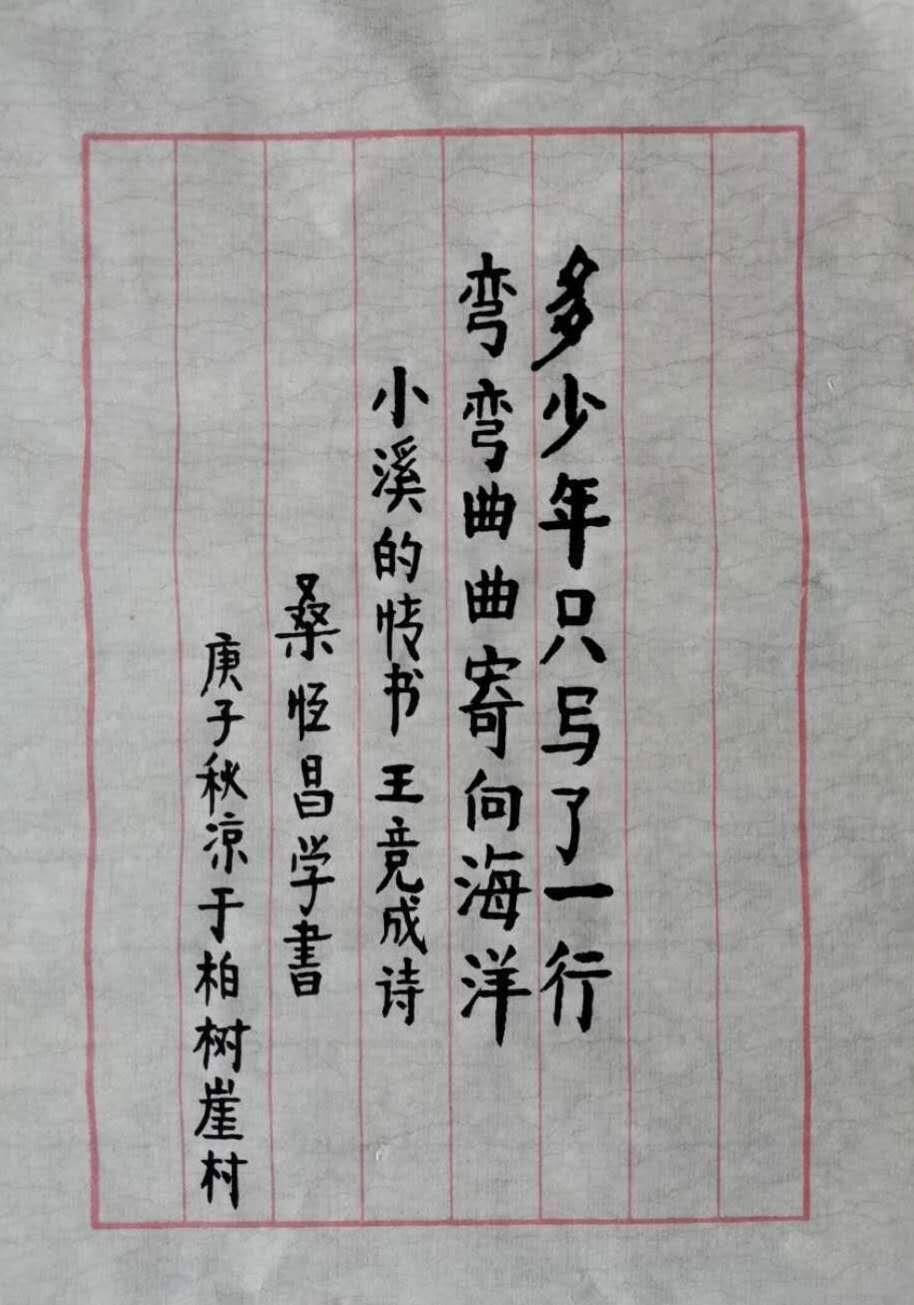 多少年只写了一行
弯弯曲曲寄向海洋
小溪的情书 王竞成诗
桑恒昌学書
庚子秋凉于柏树崖村